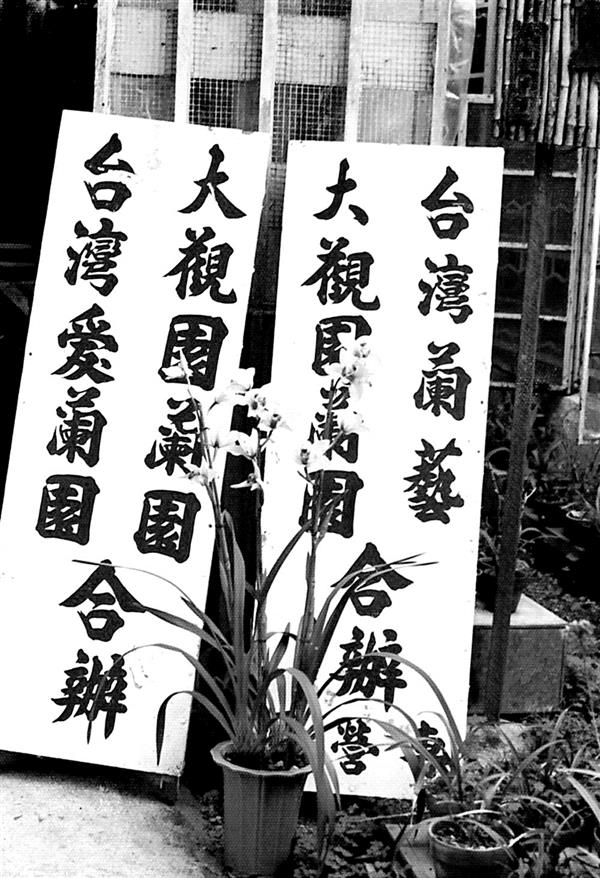 台灣蘭藝
大觀園蘭園
合辦
營
大觀園蘭園
台灣愛蘭園
合辦